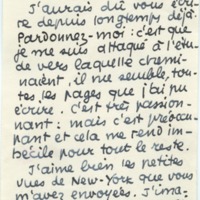 J'aurais dû vous écri-
re depuis longtemps déjà.
Pardonnez-moi : c'est que
je me suis attaqué à l'étu-
de vers laquelle chemi-
naient, il me semble, tou-
tes les pages que j'ai pu
écrire. C'est très passion-
nant : mais c'est préoccu-
pant et cela me rend im-
bécile pour tout le reste.
J'aime bien les petites
vues de New-York que vous
m'avez envoyées. J'ima-